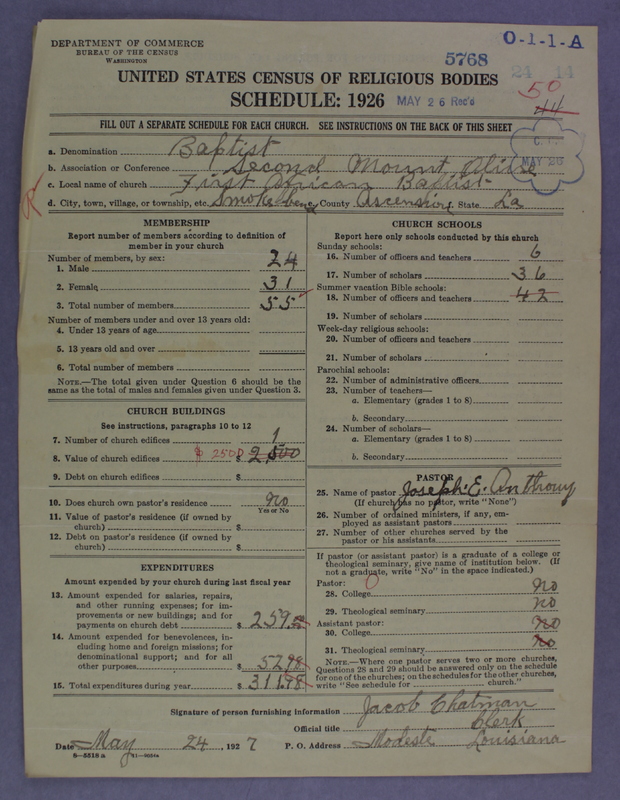 DEPARTMENT OF COMMERCE
BUREAU OF THE CENSUS
WASHINGTON
5768
O-1-1-A
24 14
UNITED STATES CENSUS OF RELIGIOUS BODIES
50
SCHEDULE: 1926 MAY 26 Rec'd
44
FILL OUT A SEPARATE SCHEDULE FOR EACH CHURCH. SEE INSTRUCTIONS ON THE BACK OF THIS SHEET
MAY 26
a. Denomination Baptist
b. Association or Conference Second Mount Olive
c. Local name of church First African Baptist
d. City, town, village, or township, etc. Smoke bend County Ascension State La
R
MEMBERSHIP
Report number of members according to definition of
member in your church
Number of members, by sex:
1. Male 24
2. Female 31
3. Total number of members 55
Number of members under and over 13 years old:
4. Under 13 years of age
5. 13 years old and over
6. Total number of members
NOTE.—The total given under Question 6 should be the
same as the total of males and females given under Question 3.
CHURCH BUILDINGS
See instructions, paragraphs 10 to 12
7. Number of church edifices 1
8. Value of church edifices $ 2500 $ 2,500
9. Debt on church edifices $
10. Does church own pastor's residence no
Yes or No
11. Value of pastor's residence (if owned by
church) $
12. Debt on pastor's residence (if owned by
church) $
EXPENDITURES
Amount expended by your church during last fiscal year
13. Amount expended for salaries, repairs,
and other running expenses; for im-
provements or new buildings; and for
payments on church debt $ 259.
14. Amount expended for benevolences, in-
cluding home and foreign missions; for
denominational support; and for all
other purposes $ 52.98
15. Total expenditures during year $ 311.98
CHURCH SCHOOLS
Report here only schools conducted by this church
Sunday schools:
16. Number of officers and teachers 6
17. Number of scholars 36
Summer vacation Bible schools:
18. Number of officers and teachers 42
19. Number of scholars
Week-day religious schools:
20. Number of officers and teachers
21. Number of scholars
Parochial schools:
22. Number of administrative officers
23. Number of teachers—
a. Elementary (grades 1 to 8)
b. Secondary
24. Number of scholars—
a. Elementary (grades 1 to 8)
b. Secondary
PASTOR
25. Name of pastor Joseph. E. Anthony
(If church has no pastor, write "None")
26. Number of ordained ministers, if any, em-
ployed as assistant pastors
27. Number of other churches served by the
pastor or his assistants
If pastor (or assistant pastor) is a graduate of a college or
theological seminary, give name of institution below. (If
not a graduate, write "No" in the space indicated.)
Pastor: 0
28. College no
29. Theological seminary no
Assistant pastor:
30. College no
31. Theological seminary no
NOTE.—Where one pastor serves two or more churches,
Questions 28 and 29 should be answered only on the schedule
for one of the churches; on the schedules for the other churches,
write "See schedule for church."
Signature of person furnishing information Jacob Chatman
Official title Clerk
Date May 24, 1927 P. O. Address Modeste Louisiana